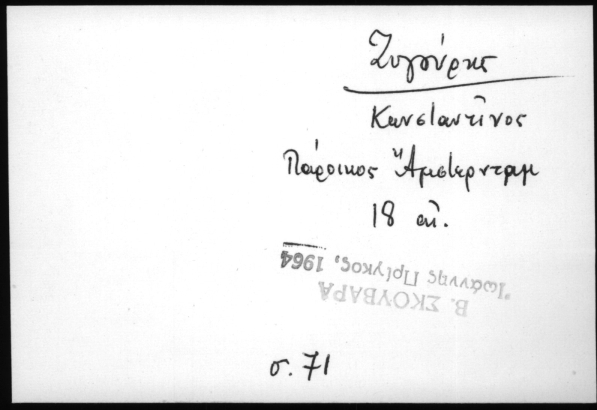 Ζυγούρης
Κωνσταντῖνος
Πάροικος Ἄμστερνταμ
18 αἰ.
Β. ΣΚΟΥΒΑΡΑ
Ἰωάννης Πρίγκος, 1964
σ. 71